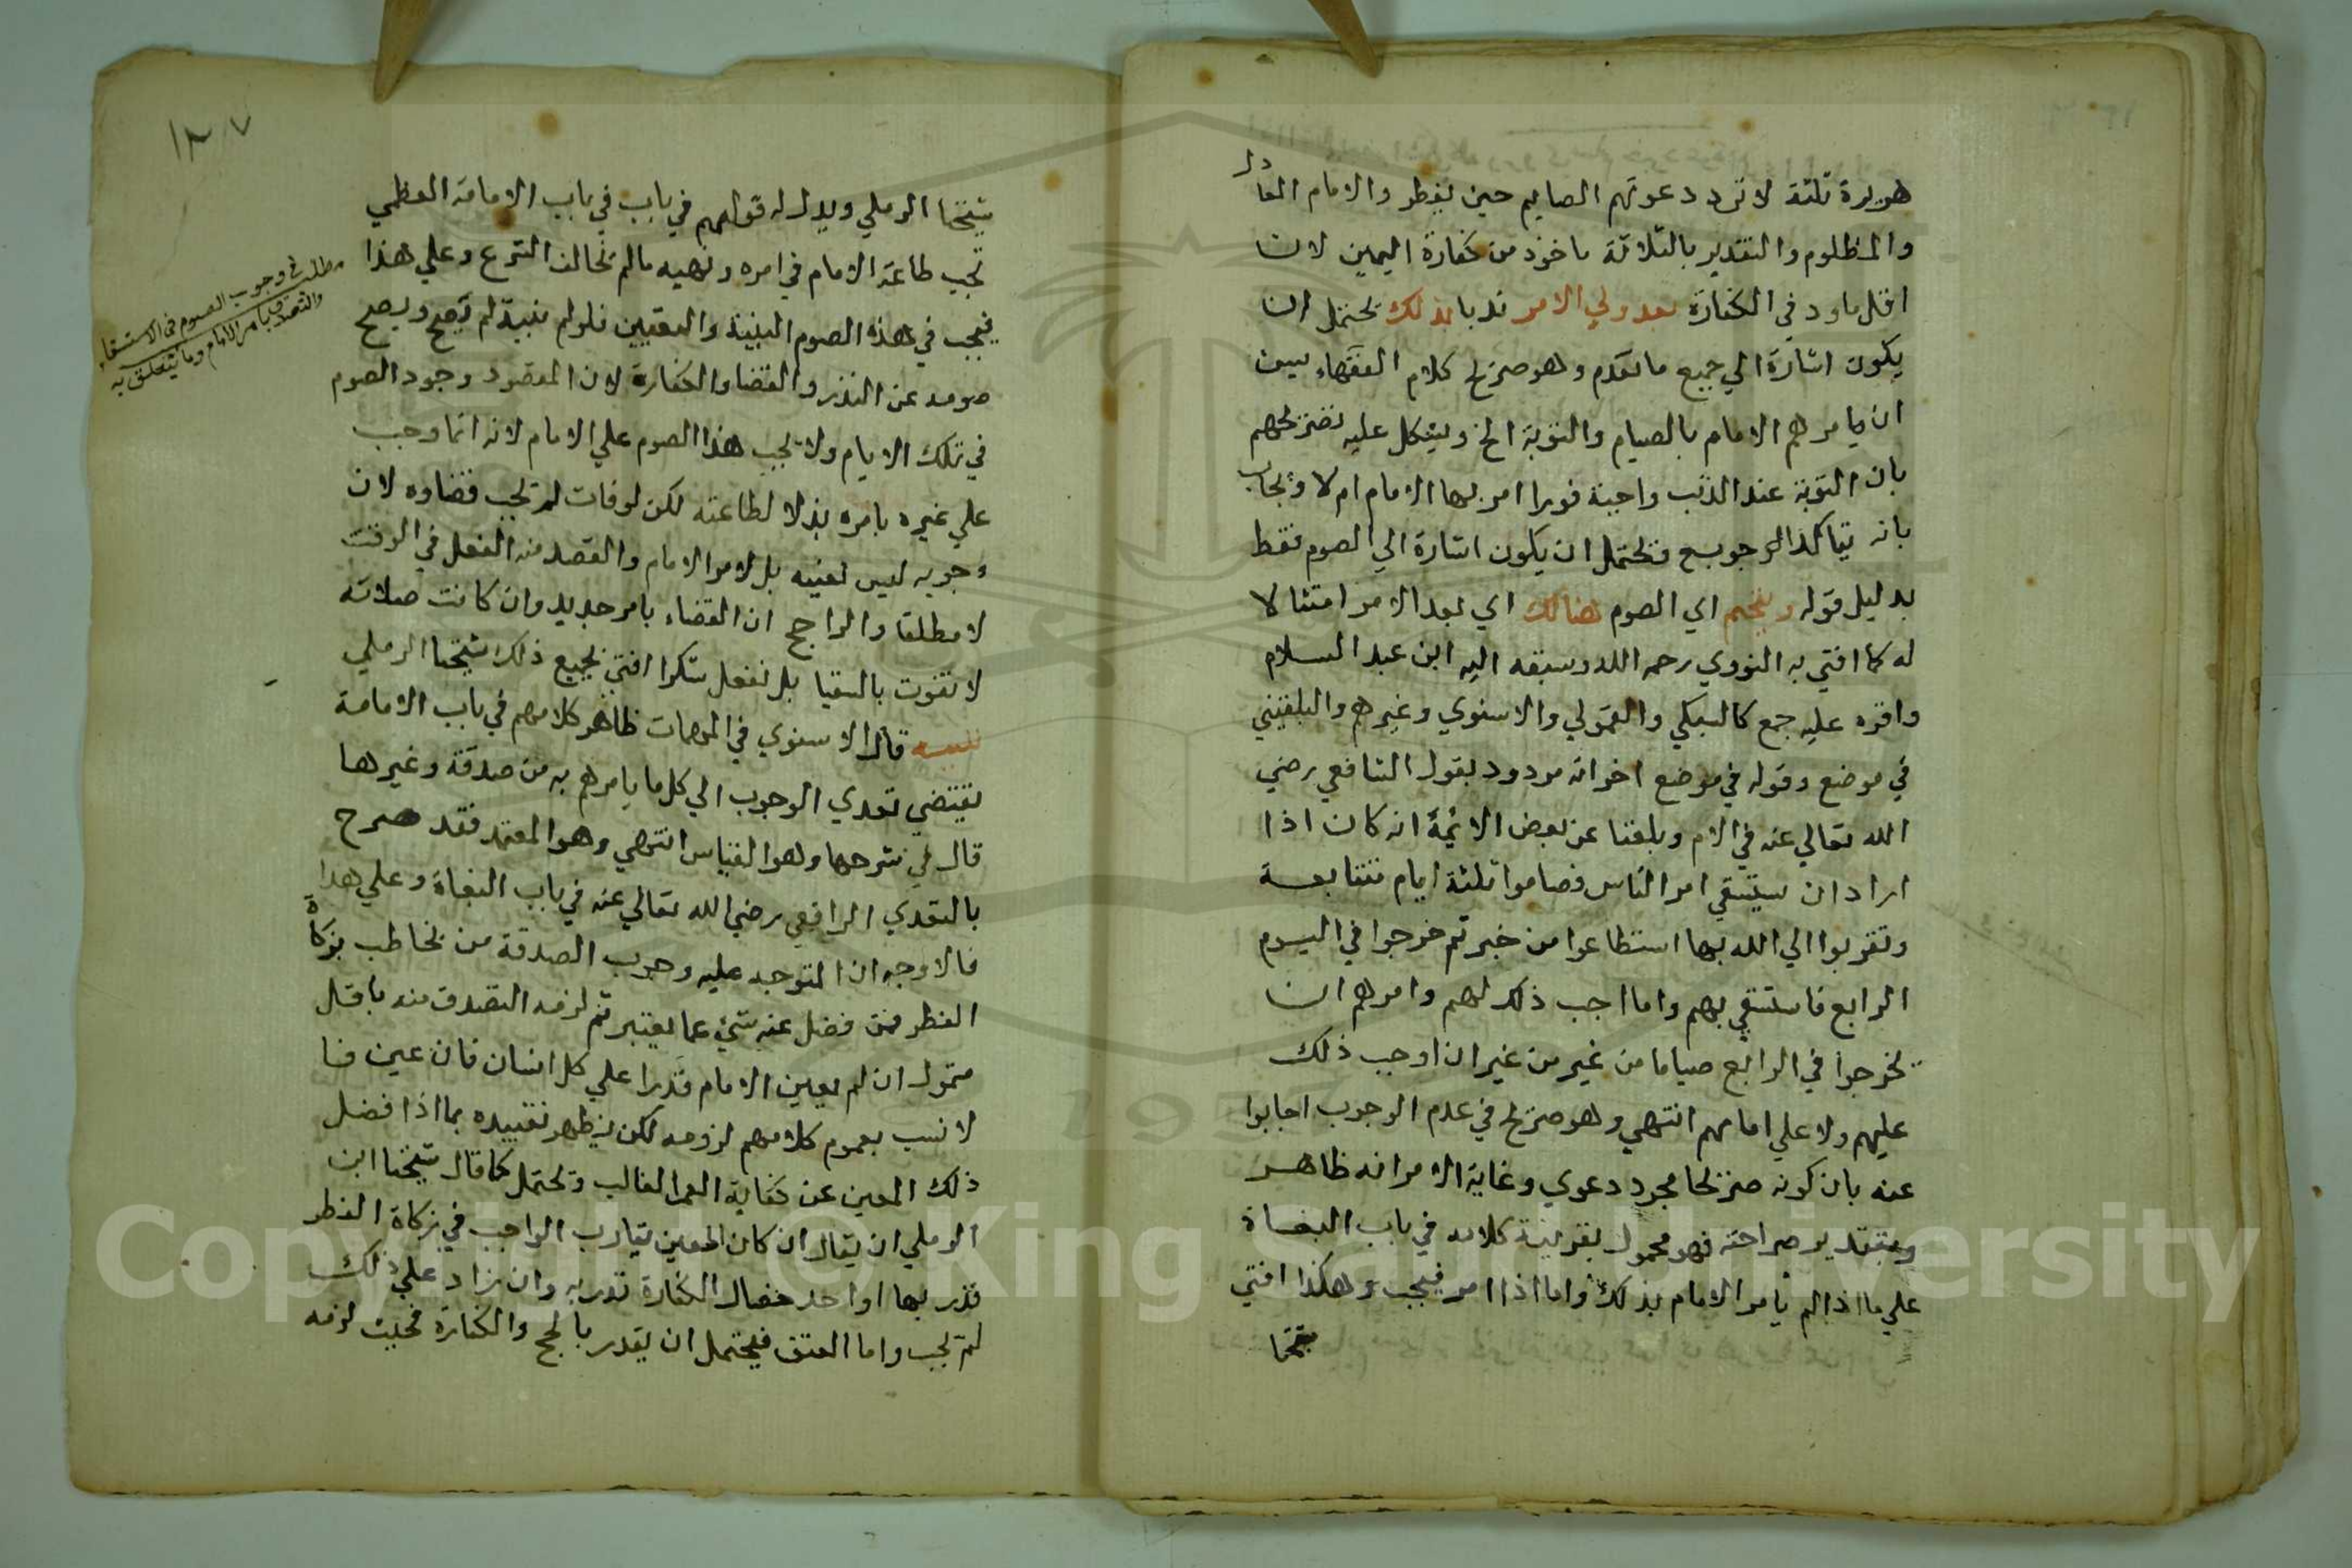 هريرة ثلثة لا ترد دعوتهم الصايم حين يفطر والامام العادل
والمظلوم والتقدير بالثلاثة ماخوذ من كفارة اليمين لان
اقل ما ود في الكفارة بعد ولي الامر ندبا بذلك يحتمل ان
يكون اشارة الي جميع ما تقدم وهو صريح كلام الفقهاء يسن
ان يامرهم الامام بالصيام والتوبة الخ ويشكل عليه تصريحهم
بان التوبة عند الذنب واجبة فورا امر بها الامام ام لا ويجاب
بانه يتاكد الوجوب ويحتمل ان يكون اشارة الي الصوم فقط
بدليل قوله ويلزمهم اي الصوم هنالك اي بعد الامر امتثالا
له كما افتي به النووي رحمه الله وسبقه اليه ابن عبد السلام
واقره عليه جمع كالسبكي والقمولي والاسنوي وغيرهم والبلقيني
في موضع وقوله في موضع اخر انه مردود بقول الشافعي رضي
الله تعالي عنه في الام وبلغنا عن بعض الائمة انه كان اذا
اراد ان يستسقي امر الناس فصاموا ثلثة ايام متتابعة
وتقربوا الي الله بما استطاعوا من خير ثم خرجوا في اليوم
الرابع فاستسقي بهم وانا احب ذلك لهم وامرهم ان
يخرجوا في الرابع صياما من غير من غير ان اوجب ذلك
عليهم ولا علي امامهم انتهي وهو صريح في عدم الوجوب اجابوا
عنه بان كونه صريحا مجرد دعوي وغاية الامر انه ظاهر
وبتقدير صراحته فهو محمول بقرينة كلامه في باب البغاة
علي ما اذا لم يامر الامام بذلك واما اذا امر فيجب وهكذا افتي
شيخنا
١٣٧
شيخنا الرملي ويدل له قولهم في باب في باب الامامة العظمي
تجب طاعة الامام في امره ونهيه مالم يخالف الشرع وعلي هذا
فيجب في هذه الصوم التبيت والتعيين فلو لم يبيت لم يصح ويصح
صومه عن النذر والقضا والكفارة لان المقصود وجود الصوم
في تلك الايام ولا يجب هذا الصوم علي الامام لانه انما وجب
علي غيره بامره بذلا لطاعته لكن لو فات لم يجب قضاوه لان
وجوبه ليس لعينه بل لامر الامام والقصد منه الفعل في الوقت
لا مطلقا والراجح ان القضاء بامر جديد وان كانت صلاته
لا تفوت بالسقيا بل تفعل شكرا افتي بجميع ذلك شيخنا الرملي
تنبيه قال الاسنوي في المهمات ظاهر كلامهم في باب الامامة
يقتضي تعدي الوجوب الي كل ما يامرهم به من صدقة وغيرها
قال في شرحها وهو القياس انتهي وهو المعتمد فقد صرح
بالتعدي الرافعي رضي الله تعالي عنه في باب البغاة وعلي هذا
فالاوجه ان المتوجه عليه وجوب الصدقة من يخاطب بزكاة
الفطر فمن فضل عنه شيء عما يعتبر ثم لزمه التصدق منه باقل
متمول ان لم يعين الامام قدرا علي كل انسان فان عين فا
لا نسب بعموم كلامهم لزومه لكن يظهر تقييده بما اذا فضل
ذلك المعين عن كفاية العمر الغالب ويحتمل كما قال شيخنا ابن
الرملي ان يقال ان كان المعين يقارب الواجب في زكاة الفطر
قدر بها او احد خصال الكفارة قدر به وان زاد علي ذلك
لم يجب واما العتق فيحتمل ان يقدر بالحج والكفارة فحيث لزمه
مطلب في وجوب الصوم في الاستسقاء
والتصدق بامر الامام وما يتعلق به
Copyright © King Saud University